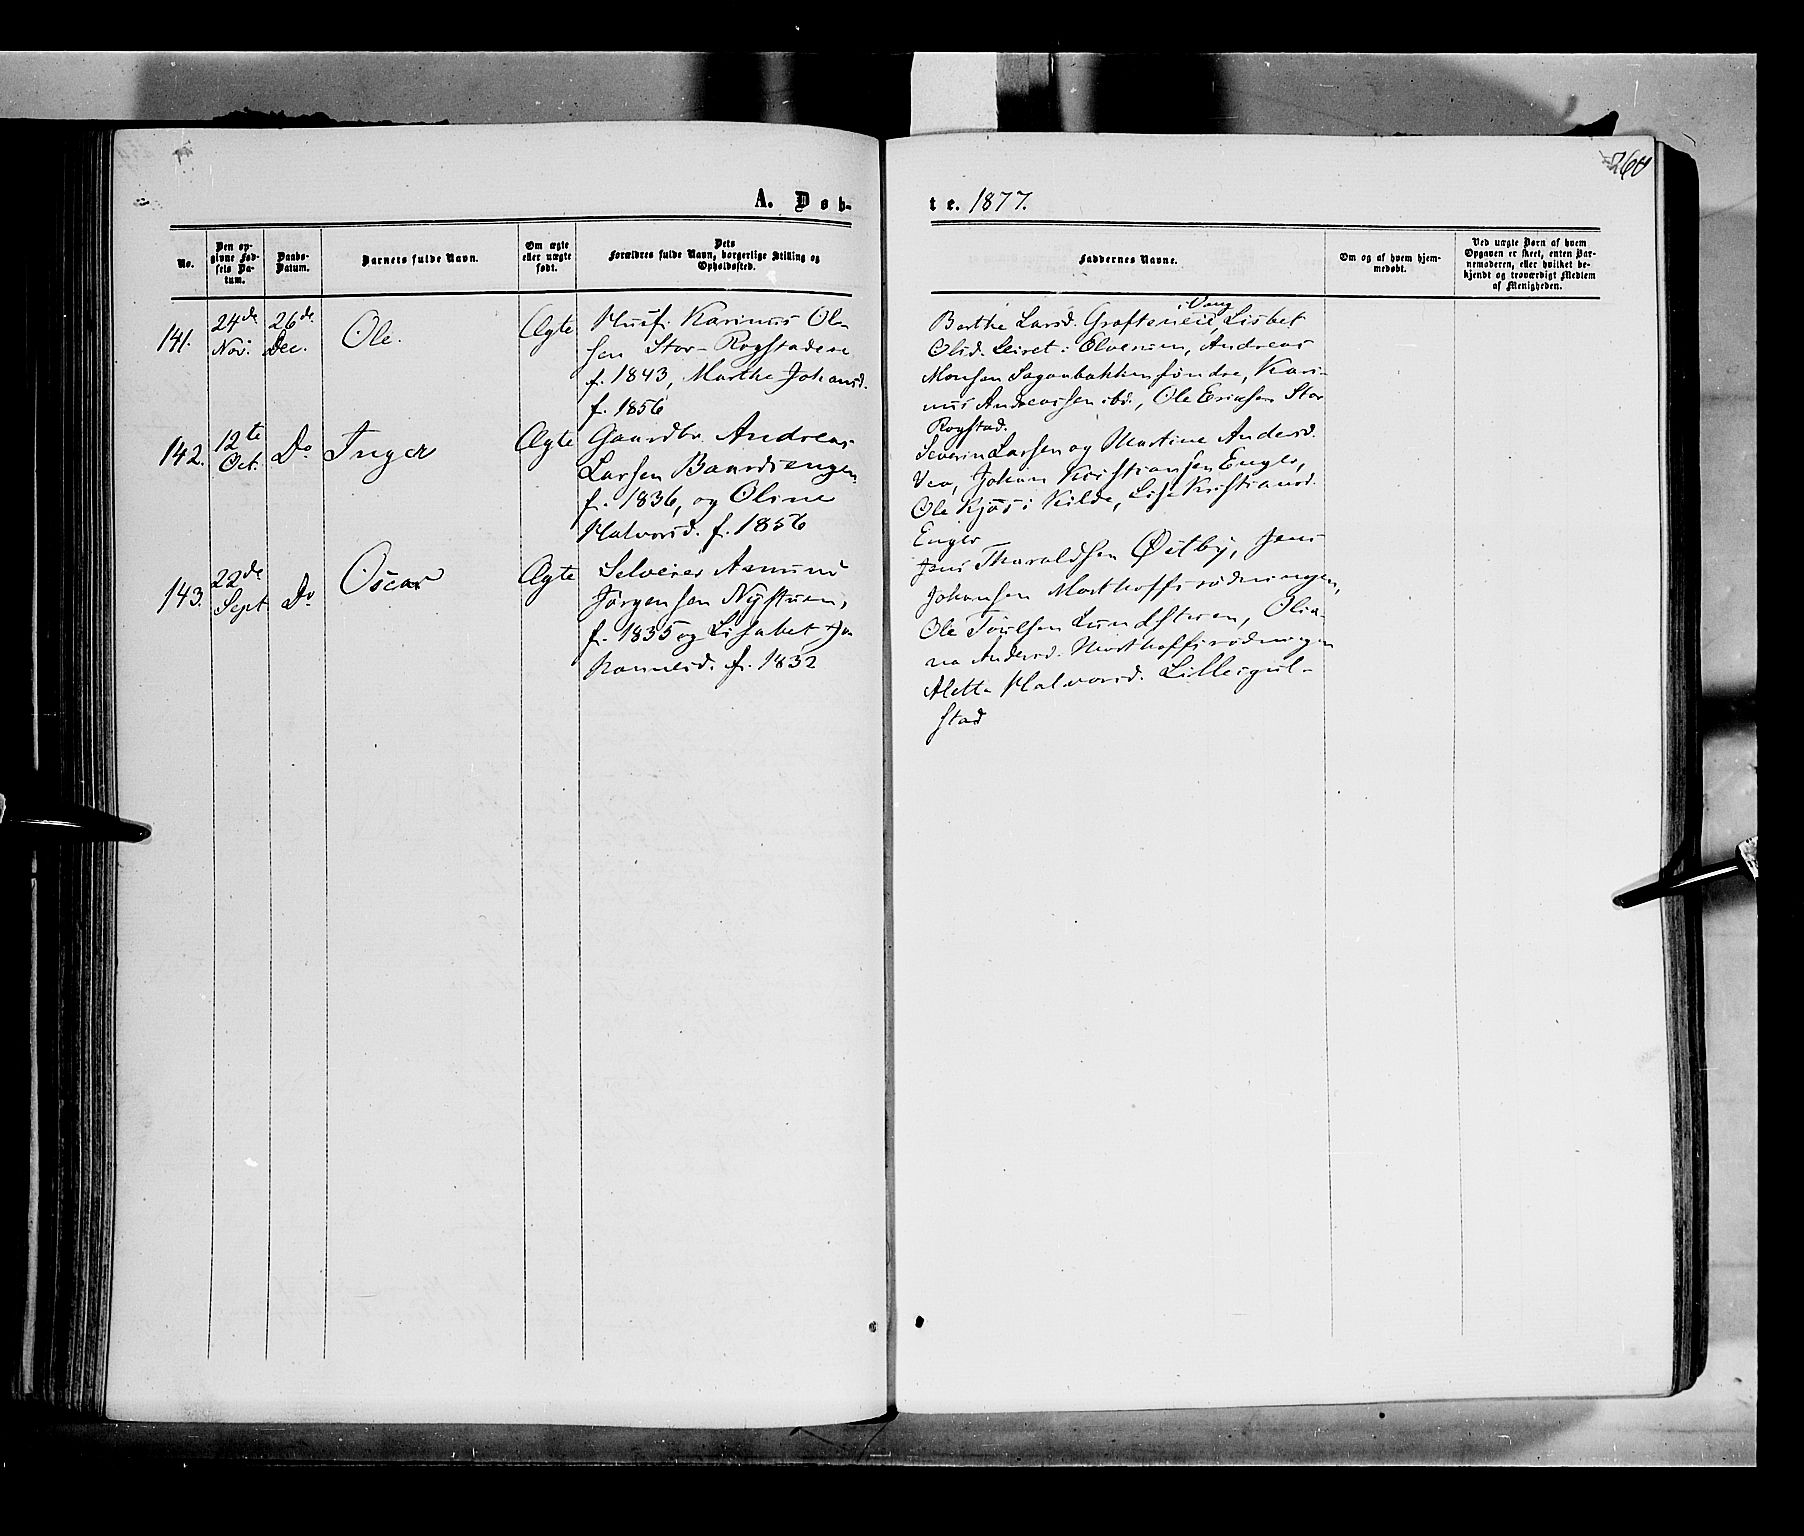 260
A. Døb-
te. 1877.
No.
Den op-
givne Fød-
sels Da-
tum.
Daabs-
Datum.
Barnets fulde Navn.
Om ægte
eller uægte
født.
Dets
Forældres fulde Navn, borgerlige Stilling og
Opholdssted.
Faddernes Navne.
Om og af hvem hjem-
medøbt.
Ved uægte Børn af hvem
Opgaven er skeet, enten Bar-
nemoderen, eller hvilket be-
kjendt og troværdigt Medlem
af Menigheden.
141.
24de
Nov.
26de
Dec.
Ole.
Ægte
Husf. Karinus Ol-
sen Stor-Rogstadeie
f. 1843, Marthe Johansd.
f. 1856
i Vang
Berthe Larsd. Lisbet
Olsd. Leiret i Elverum, Andreas
Monsen Saganbakken søndre, Kari-
nus Andreassen ibd., Ole Eriksen Stor
Rogstad.
142.
12te
Oct.
Do
Inger
Ægte
Gaardbr. Andreas
Larsen Baardsengen
f. 1836, og Oline
Halvorsd. f. 1856
Severin Larsen og Martine Andersd.
Vea, Johan Kristiansen Enger,
Ole Kjøs i Kilde, Lise Kristiansd.
Enger
143.
22de
Sept
Do
Oscar
Ægte
Selveier Asmund
Jørgensen Nystuen,
f. 1835 og Lisabet Jo
hannesd. f. 1832
Jens Tharaldsen Østby, Jens
Johansen Morthoffsrødningen,
Ole Lundsteen, Olia-
na Andersd. Morthoffsrødningen
Alette Halvorsd. Lillesgul-
stad